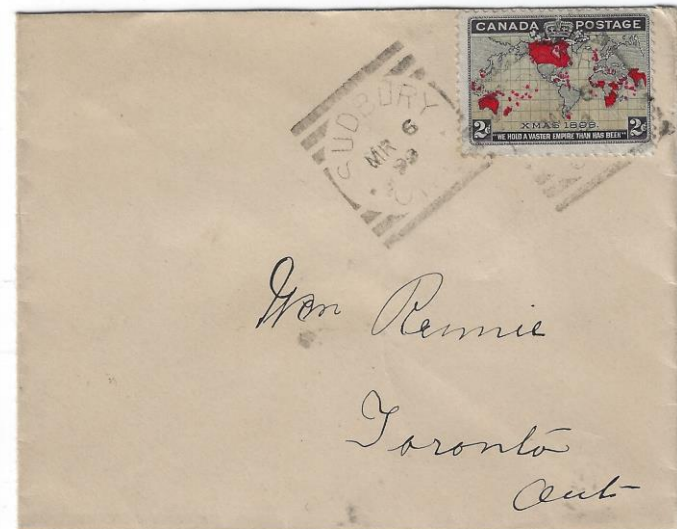 CANADA POSTAGE
XMAS 1898
2c 2c
"WE HOLD A VASTER EMPIRE THAN HAS BEEN"
SUDBURY
MR 6
99
Wm Rennie
Toronto
Ont